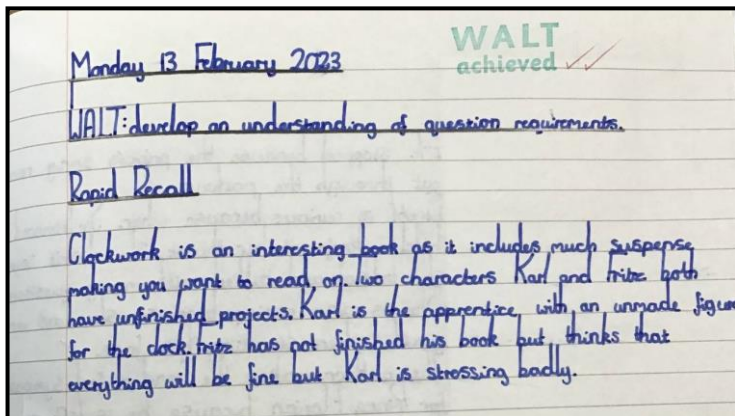 WALT
achieved
Monday 13 February 2023
WALT: develop an understanding of question requirements.
Rapid Recall
Clockwork is an interesting book as it includes much suspense
making you want to read on. Two characters Karl and Fritz both
have unfinished projects. Karl is the apprentice with an unmade figure
for the clock. Fritz has not finished his book but thinks that
everything will be fine but Karl is stressing badly.